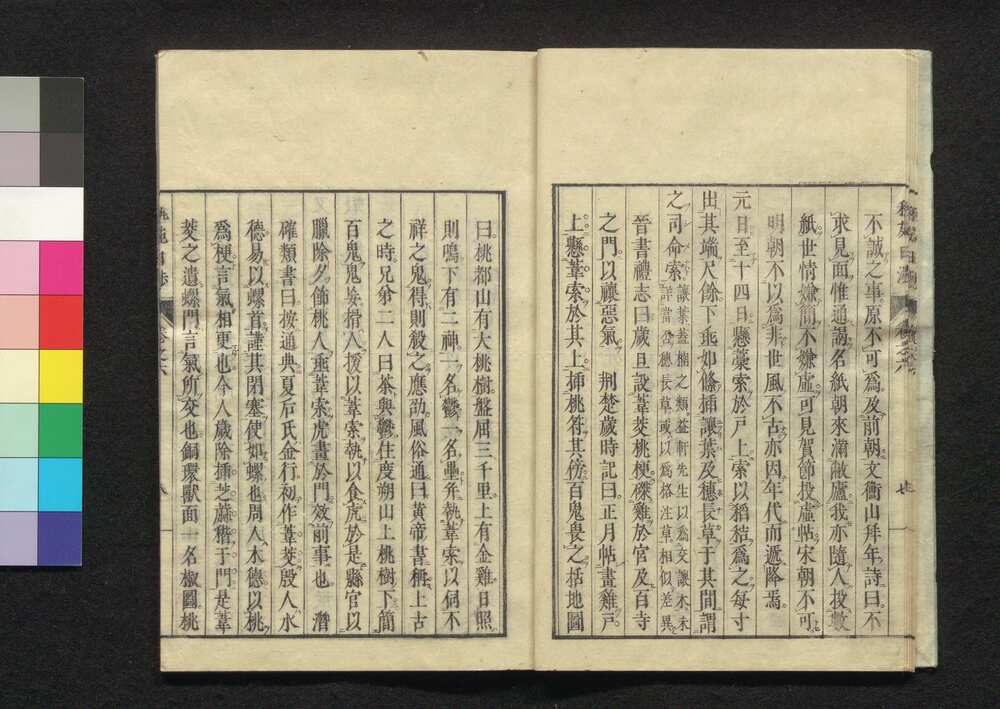 不誠之事原不可爲及前朝文衡山拜年詩曰不
求見面惟通謁名紙朝來滿敝廬我亦隨人投數
紙世情嫌簡不嫌虛可見賀節投虛帖宋朝不可
明朝不以爲非世風不古亦因年代而遞降焉
元日至十四日懸藁索於戸上索以稻秸爲之每寸
出其端尺餘下垂如絛插讓葉及穗長草于其間謂
之司命索
讓葉蓋楠之類益軒先生以爲交讓木未
詳當否穗長草或以爲絡注草相似差異
晉書禮志曰歲旦設葦茭桃梗磔雞於宮及百寺
之門以禳惡氣 荆楚歲時記曰正月帖畫雞戸
上懸葦索於其上插桃符其傍百鬼畏之括地圖
曰桃都山有大桃樹盤屈三千里上有金雞日照
則鳴下有二神一名鬱一名壘并執葦索以伺不
祥之鬼得則殺之應劭風俗通曰黄帝書稱上古
之時兄弟二人曰荼與鬱住度朔山上桃樹下簡
百鬼鬼妄搰人援以葦索執以食虎於是縣官以
臘除夕飾桃人垂葦索虎畫於門效前事也 潛
確類書曰按通典夏后氏金行初作葦茭殷人水
德易以螺首謹其閉塞使如螺也周人木德以桃
爲梗言氣相更也今人歲除插芝蔴稭于門是葦
茭之遺螺門言氣所交也銅環獸面一名椒圖桃